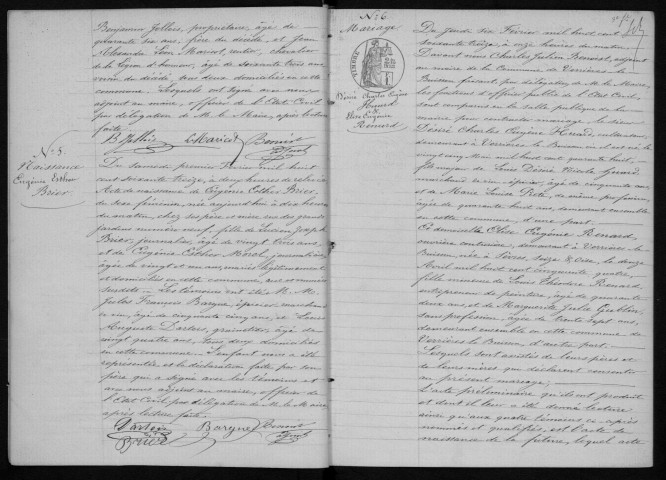 Benjamin Vilhès, propriétaire, âgé de
quarante six ans, frère du décédé, et Jean
Alexandre Léon Maricot, rentier, chevalier
de la Légion d'honneur, âgé de soixante trois ans,
voisin du décédé, tous deux domiciliés en cette
commune. Lesquels ont signé avec nous
adjoint au maire, officier de l'Etat Civil
par délégation de M. le Maire, après lecture
faite.
L. Maricot Benoist
Adjoint
N° 5.
Naissance
Eugénie Esther
Brier
Du samedi premier Février mil huit cent
soixante treize, à deux heures de relevée
Acte de naissance de Eugénie Esther Brier,
du sexe féminin, née aujourd'hui à dix heures
du matin, chez ses père et mère rue des grands
jardins numéro neuf, fille de Joseph
Brier, journalier, âgé de vingt trois ans,
et de Eugénie Esther Morel, journalière,
âgée de vingt et un ans, mariés légitimement
et domiciliés en cette commune, rue et numéro
susdits. Les témoins ont été M. M.
Jules François Bargue, épicier marchand de
vin, âgé de cinquante cinq ans, et Louis
Auguste Darlers, grainetier, âgé de
vingt quatre ans, tous deux domiciliés
en cette commune. L'enfant nous a été
représentée, et la déclaration faite par son
père qui a signé avec les témoins et
avec nous adjoint au maire, officier de
l'Etat Civil par délégation de M. le Maire,
après lecture faite.
Bargue Benoist
Brier Adjoint
N° 6
Mariage
TIMBRE
Désiré Charles Eugène
&
Elise Eugénie
Renard
Du Jeudi six Février mil huit cent
soixante treize, à onze heures du matin
Devant nous Charles Julien Benoist, adjoint
au maire de la Commune de Verrières le
Buisson, faisant, par délégation de M. le Maire,
les fonctions d'officier public de l'Etat Civil,
sont comparus en la salle publique de la
mairie pour contracter mariage, le sieur
Désiré Charles Eugène, cultivateur,
demeurant à Verrières le Buisson où il est né le
vingt cinq mai mil huit cent quarante huit,
fils majeur de Louis Désiré Nicolas,
marchand de vin épicier, âgé de cinquante ans,
et de Marie Louise, de même profession,
âgée de quarante huit ans, demeurant ensemble
en cette commune, d'une part.
Et demoiselle Elise Eugénie Renard,
ouvrière couturière, demeurant à Verrières le
Buisson, née à Sèvres, Seine & Oise, le douze
Avril mil huit cent cinquante quatre,
fille mineure de Louis Théodore Renard,
entrepreneur de peinture, âgé de quarante
deux ans, et de Marguerite Julie,
sans profession, âgée de trente sept ans,
demeurant ensemble en cette commune de
Verrières le Buisson, d'autre part.
Lesquels sont assistés de leurs pères et
de leurs mères qui déclarent consentir
au présent mariage;
L'acte préliminaire qu'ils ont produit
et dont il leur a été donné lecture
ainsi qu'aux quatre témoins ci-après
nommés et qualifiés, est l'acte de
naissance de la future, lequel acte